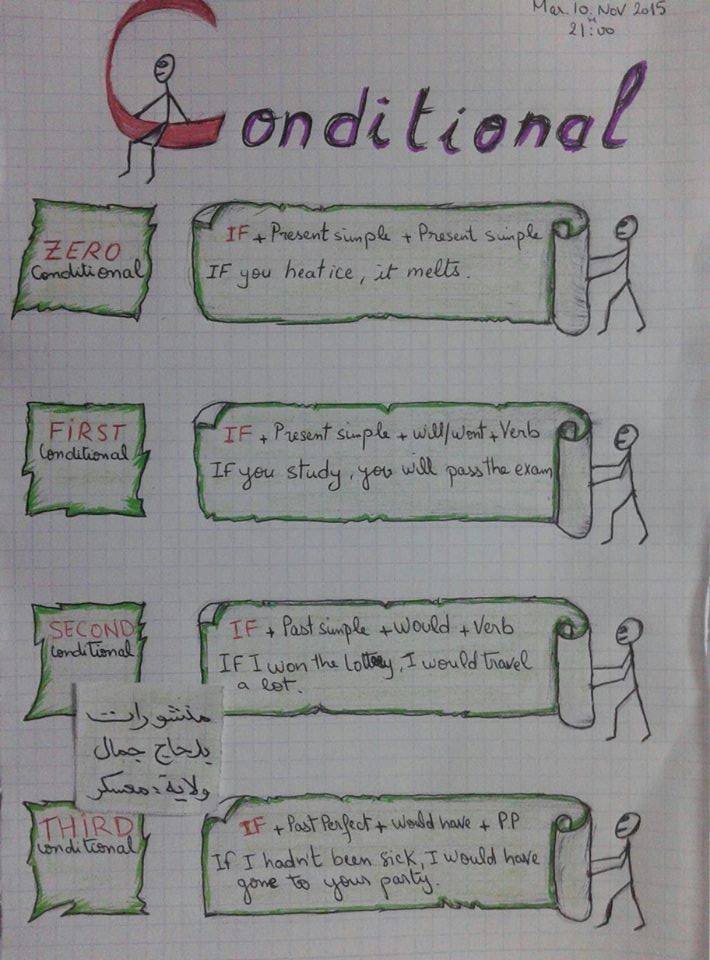 Mar. 10. Nov 2015
21:00
Conditional
ZERO
Conditional
IF + Present simple + Present simple
IF you heat ice, it melts.
FIRST
Conditional
IF + Present simple + will/wont + Verb
If you study, you will pass the exam
SECOND
Conditional
IF + Past simple + would + Verb
If I won the Lottery, I would travel
a lot.
منشورات
بلحاج جمال
ولاية: معسكر
THIRD
Conditional
IF + Past Perfect + would have + P.P
If I hadn't been sick, I would have
gone to your party.